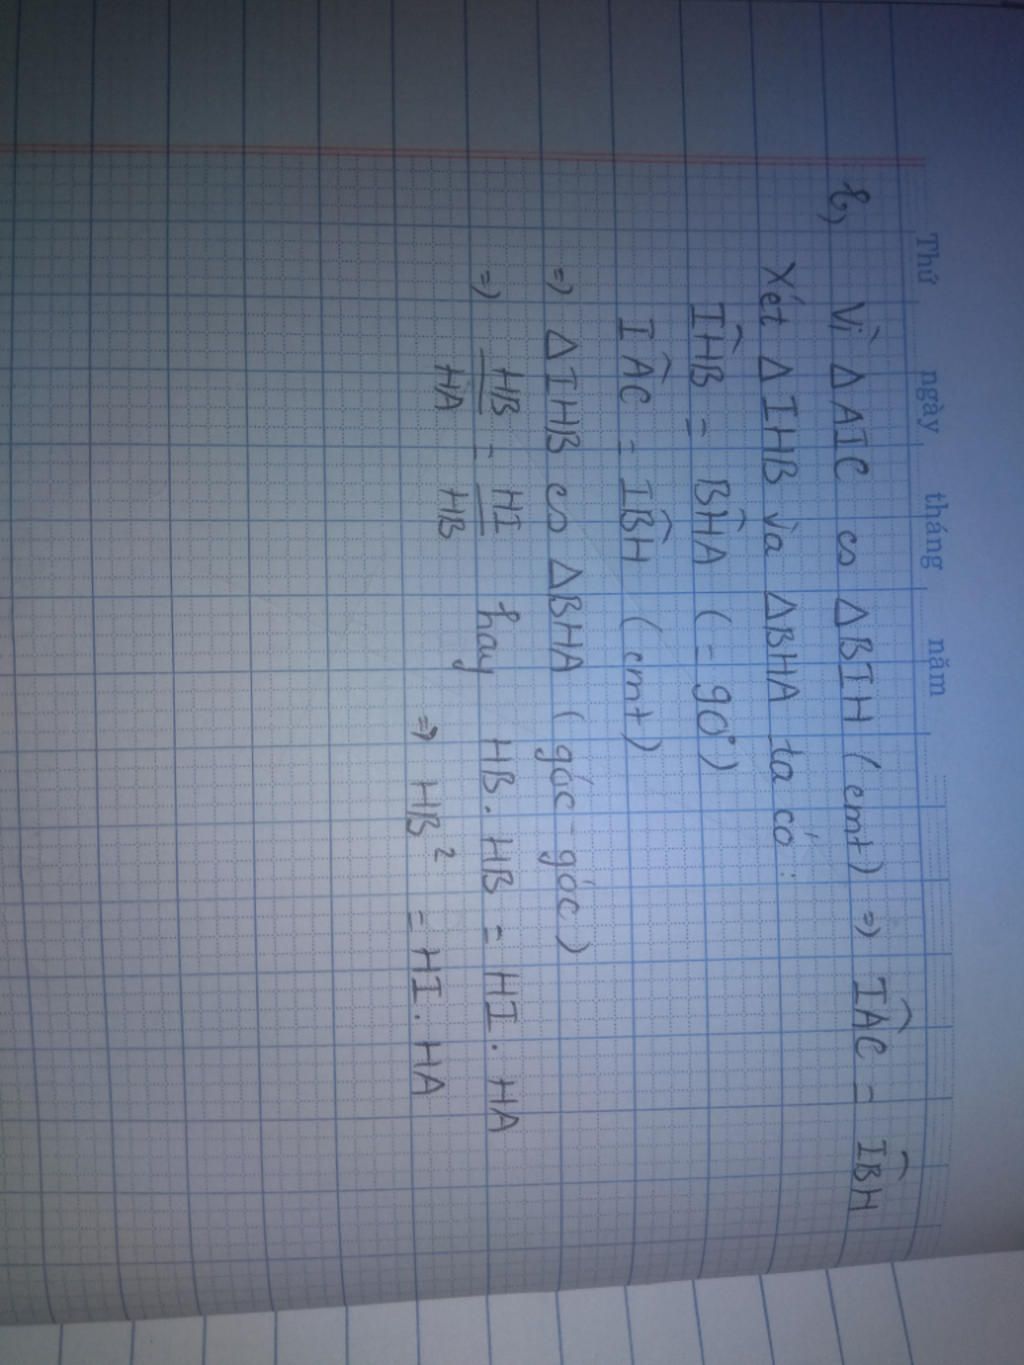 Thứ ngày tháng năm
b, Vì Δ AIC ∽ Δ BIH (cmt) => IÂC = IB̂H
Xét Δ IHB và Δ BHA ta có:
IĤB = BĤA (= 90°)
IÂC = IB̂H (cmt)
=> Δ IHB ∽ Δ BHA (góc - góc)
=> HB/HA = HI/HB hay HB . HB = HI . HA
=> HB² = HI . HA